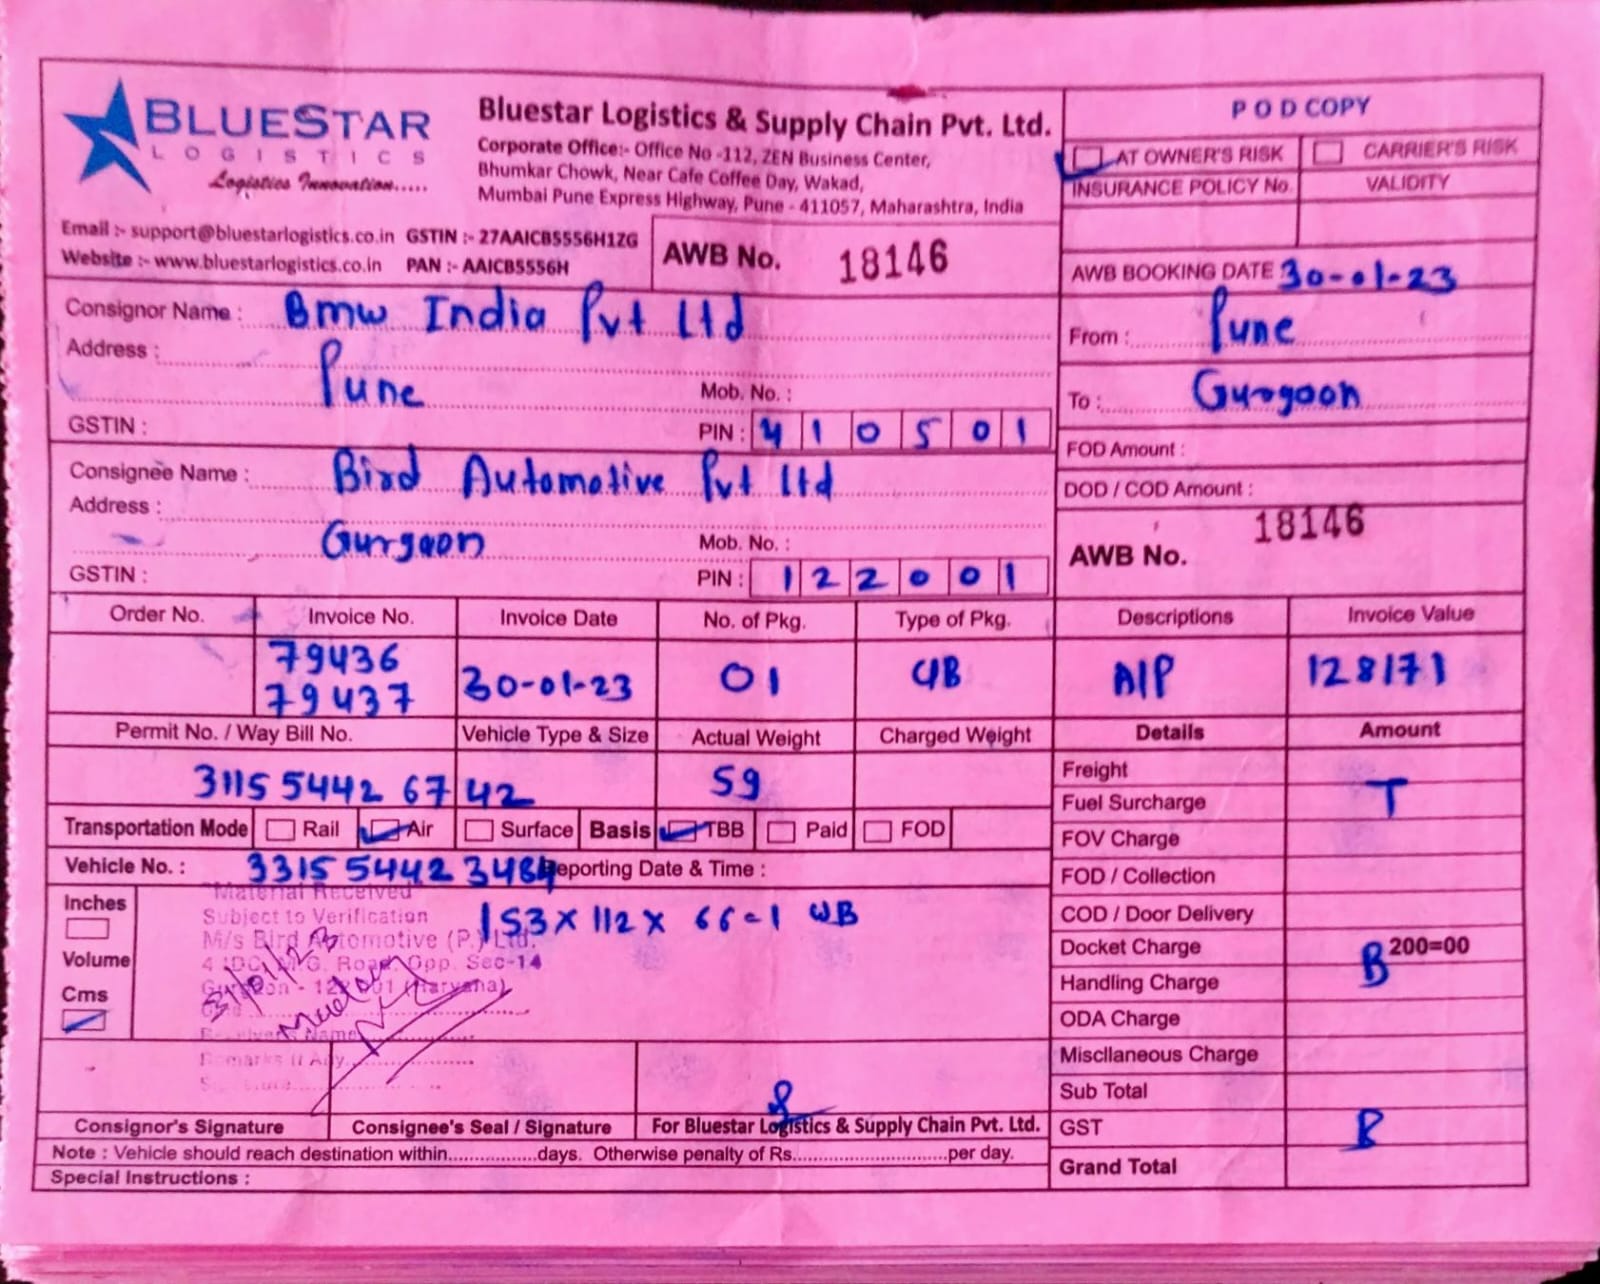 BLUESTAR
LOGISTICS
Logistics Innovation.....
Bluestar Logistics & Supply Chain Pvt. Ltd.
Corporate Office:- Office No -112, ZEN Business Center,
Bhumkar Chowk, Near Cafe Coffee Day, Wakad,
Mumbai Pune Express Highway, Pune - 411057, Maharashtra, India
Email :- support@bluestarlogistics.co.in GSTIN :- 27AAICB5556H1ZG
Website :- www.bluestarlogistics.co.in PAN :- AAICB5556H
AWB No. 18146
POD COPY
AT OWNER'S RISK CARRIER'S RISK
INSURANCE POLICY No. VALIDITY
AWB BOOKING DATE 30-01-23
From : Pune
To : Gurgaon
FOD Amount :
DOD / COD Amount :
AWB No. 18146
Consignor Name : Bmw India Pvt Ltd
Address :
Pune Mob. No. :
GSTIN : PIN : 410501
Consignee Name : Bird Automotive Pvt Ltd
Address :
Gurgaon Mob. No. :
GSTIN : PIN : 122001
Order No. Invoice No. Invoice Date No. of Pkg. Type of Pkg. Descriptions Invoice Value
79436
79437 30-01-23 01 A/P 128171
Permit No. / Way Bill No. Vehicle Type & Size Actual Weight Charged Weight Details Amount
3115 5442 67 42 59
Freight
Fuel Surcharge T
FOV Charge
FOD / Collection
COD / Door Delivery
Docket Charge 200=00
Handling Charge B
ODA Charge
Miscllaneous Charge
Sub Total
GST B
Grand Total
Transportation Mode Rail Air Surface Basis TBB Paid FOD
Vehicle No. : 3315 5442 3484 Reporting Date & Time :
Inches
Volume
Cms
153 x 112 x 66 = 1 WB
Material Received
Subject to Verification
M/s Bird Automotive (P.) Ltd.
4 IDC, M.G. Road, Opp. Sec-14
Gurgaon - 122001 (Haryana)
31/01/23
Receivers Name
Remarks If Any
Consignor's Signature Consignee's Seal / Signature For Bluestar Logistics & Supply Chain Pvt. Ltd.
Note : Vehicle should reach destination within...............days. Otherwise penalty of Rs...........................per day.
Special Instructions :